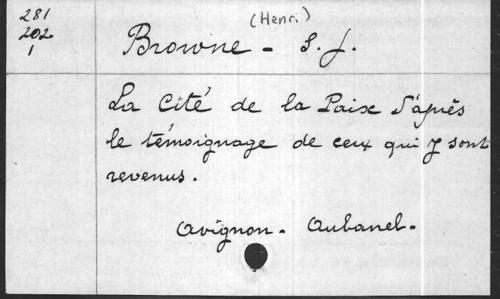 281
202
1
(Henri)
Browne - S.J.
La Cité de la Paix d'après
le témoignage de ceux qui y sont
revenus.
Avignon - Aubanel.